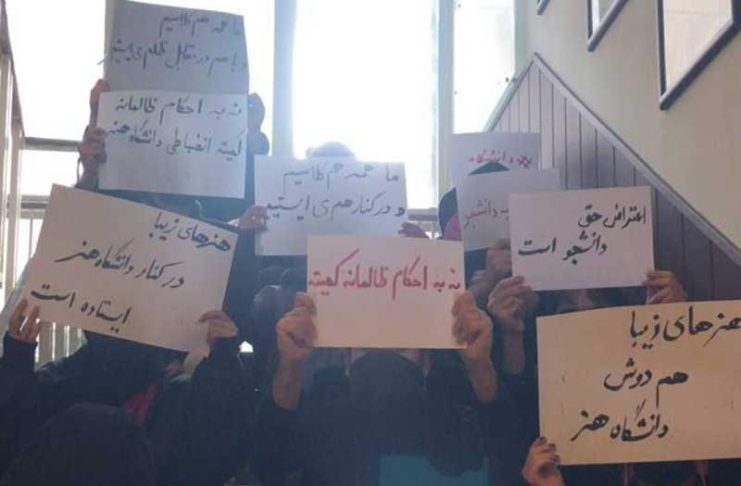 ما همه هم کلاسیم
و با هم در مقابل ظلم می ایستیم
نه به احکام ظالمانه
کمیته انضباطی دانشگاه هنر
ما همه هم کلاسیم
و در کنار هم می ایستیم
دانشگاه
به دانشجو
اعتراض حق
دانشجو است
هنرهای زیبا
در کنار دانشگاه هنر
ایستاده است
نه به احکام ظالمانه کمیته
هنرهای زیبا
هم دوش
دانشگاه هنر